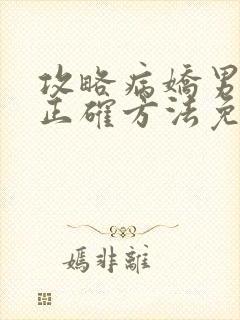 攻略病嬌男
正確方法免
嫣非離